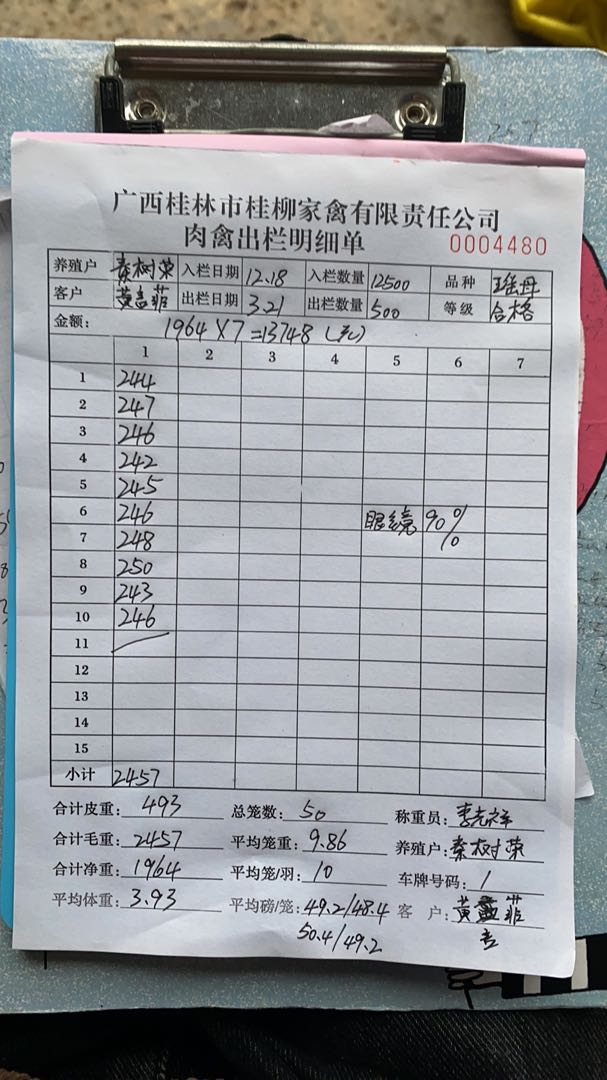 广西桂林市桂柳家禽有限责任公司
肉禽出栏明细单 0004480
养殖户 秦树荣 入栏日期 12.18 入栏数量 12500 品种 瑶丹
客户 黄吉菲 出栏日期 3.21 出栏数量 500 等级 合格
金额: 1964×7=13748(元)
1 2 3 4 5 6 7
1 244
2 247
3 246
4 242
5 245
6 246 眼镜 90%
7 248 10
8 250
9 243
10 246
11
12
13
14
15
小计 2457
合计皮重: 493 总笼数: 50 称重员:
合计毛重: 2457 平均笼重: 9.86 养殖户: 秦树荣
合计净重: 1964 平均笼/羽: 10 车牌号码: /
平均体重: 3.93 平均磅/笼: 49.2/48.4 客 户: 黄菲
50.4/49.2 吉